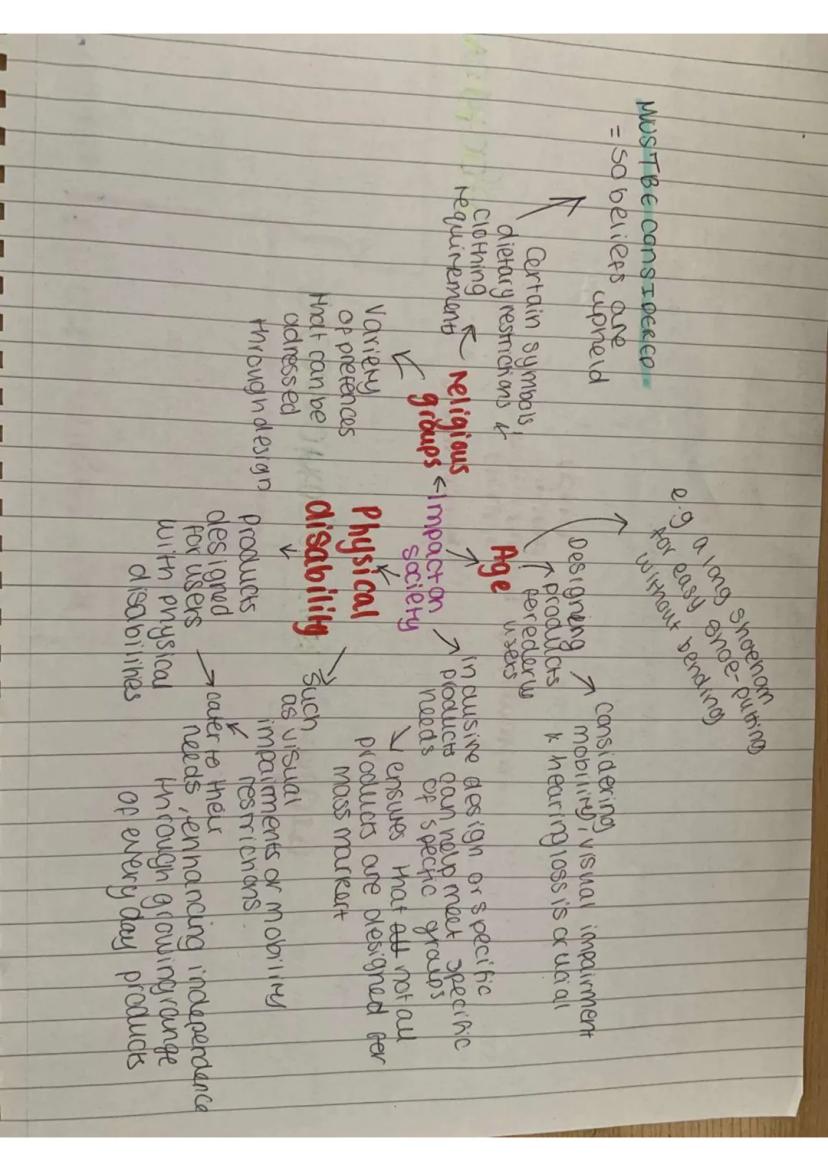 MUST BE CONSIDERED
= So beliefs are
upheld
Certain symbols,
dietary restrictions &
clothing
requirements
religious
groups
Variety
of prefences
that can be
adressed
through design
Impact on
society
Age
Designing
products
for eder
users
e.g a long shoehorn
for easy shoe-putting
without bending
considering
mobility, visual impairment
& hearing loss is crucial
inclusive design or specific
products can help meet specific
needs of specific groups
ensures that not all
products are designed for
mass markert
Physical
disability
products
designed
for users
with physical
disabilities
such
as visual
impairments or mobility
restrictions
cater to their
needs, enhancing independence
through growing range
of every day products